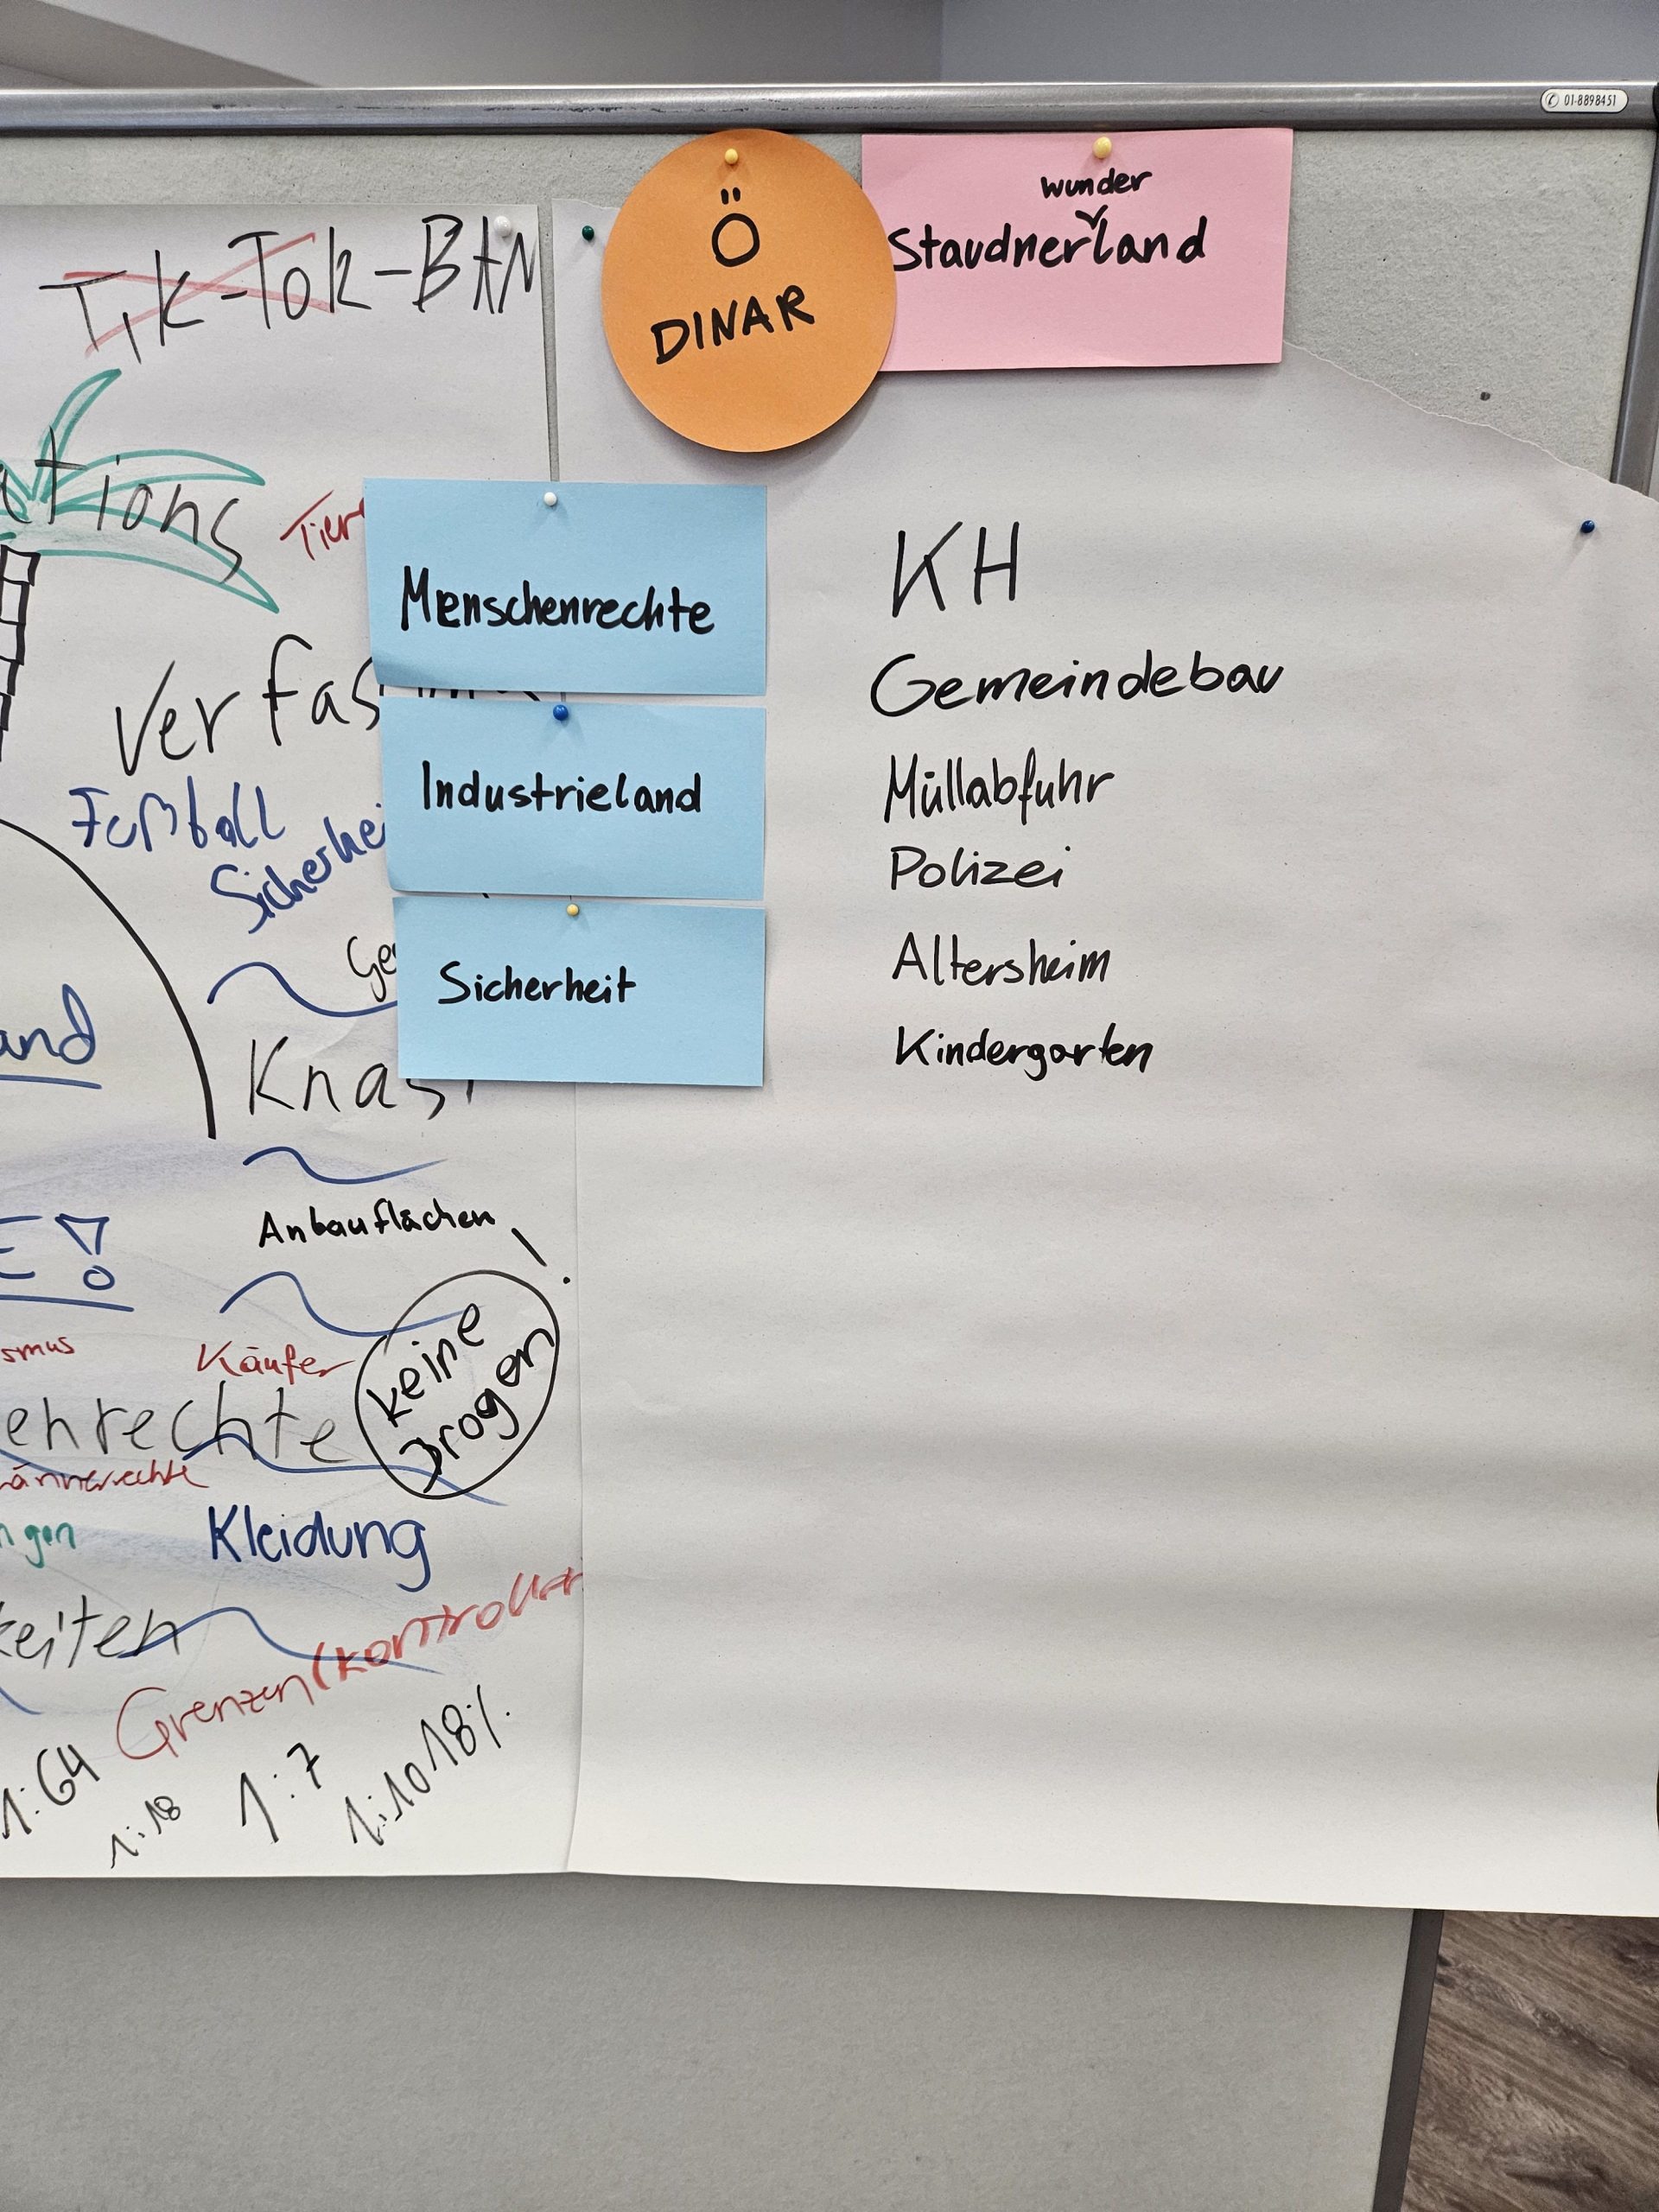 01-8898451
Tik-Tok-BAN
Ö
DINAR
wunder
Staudnerland
ations
Tier
Menschenrechte
KH
Verfas
Gemeindebau
Fußball
Industrieland
Müllabfuhr
Sicherhei
Polizei
Ge
Sicherheit
Altersheim
and
Knast
Kindergarten
Anbauflächen
E!
keine
Drogen!
smus
Käufer
enrechte
ännerrechte
ngen
Kleidung
keiten
Grenzen(kontrollen
1:64
1:18
1:7
1:10
18%